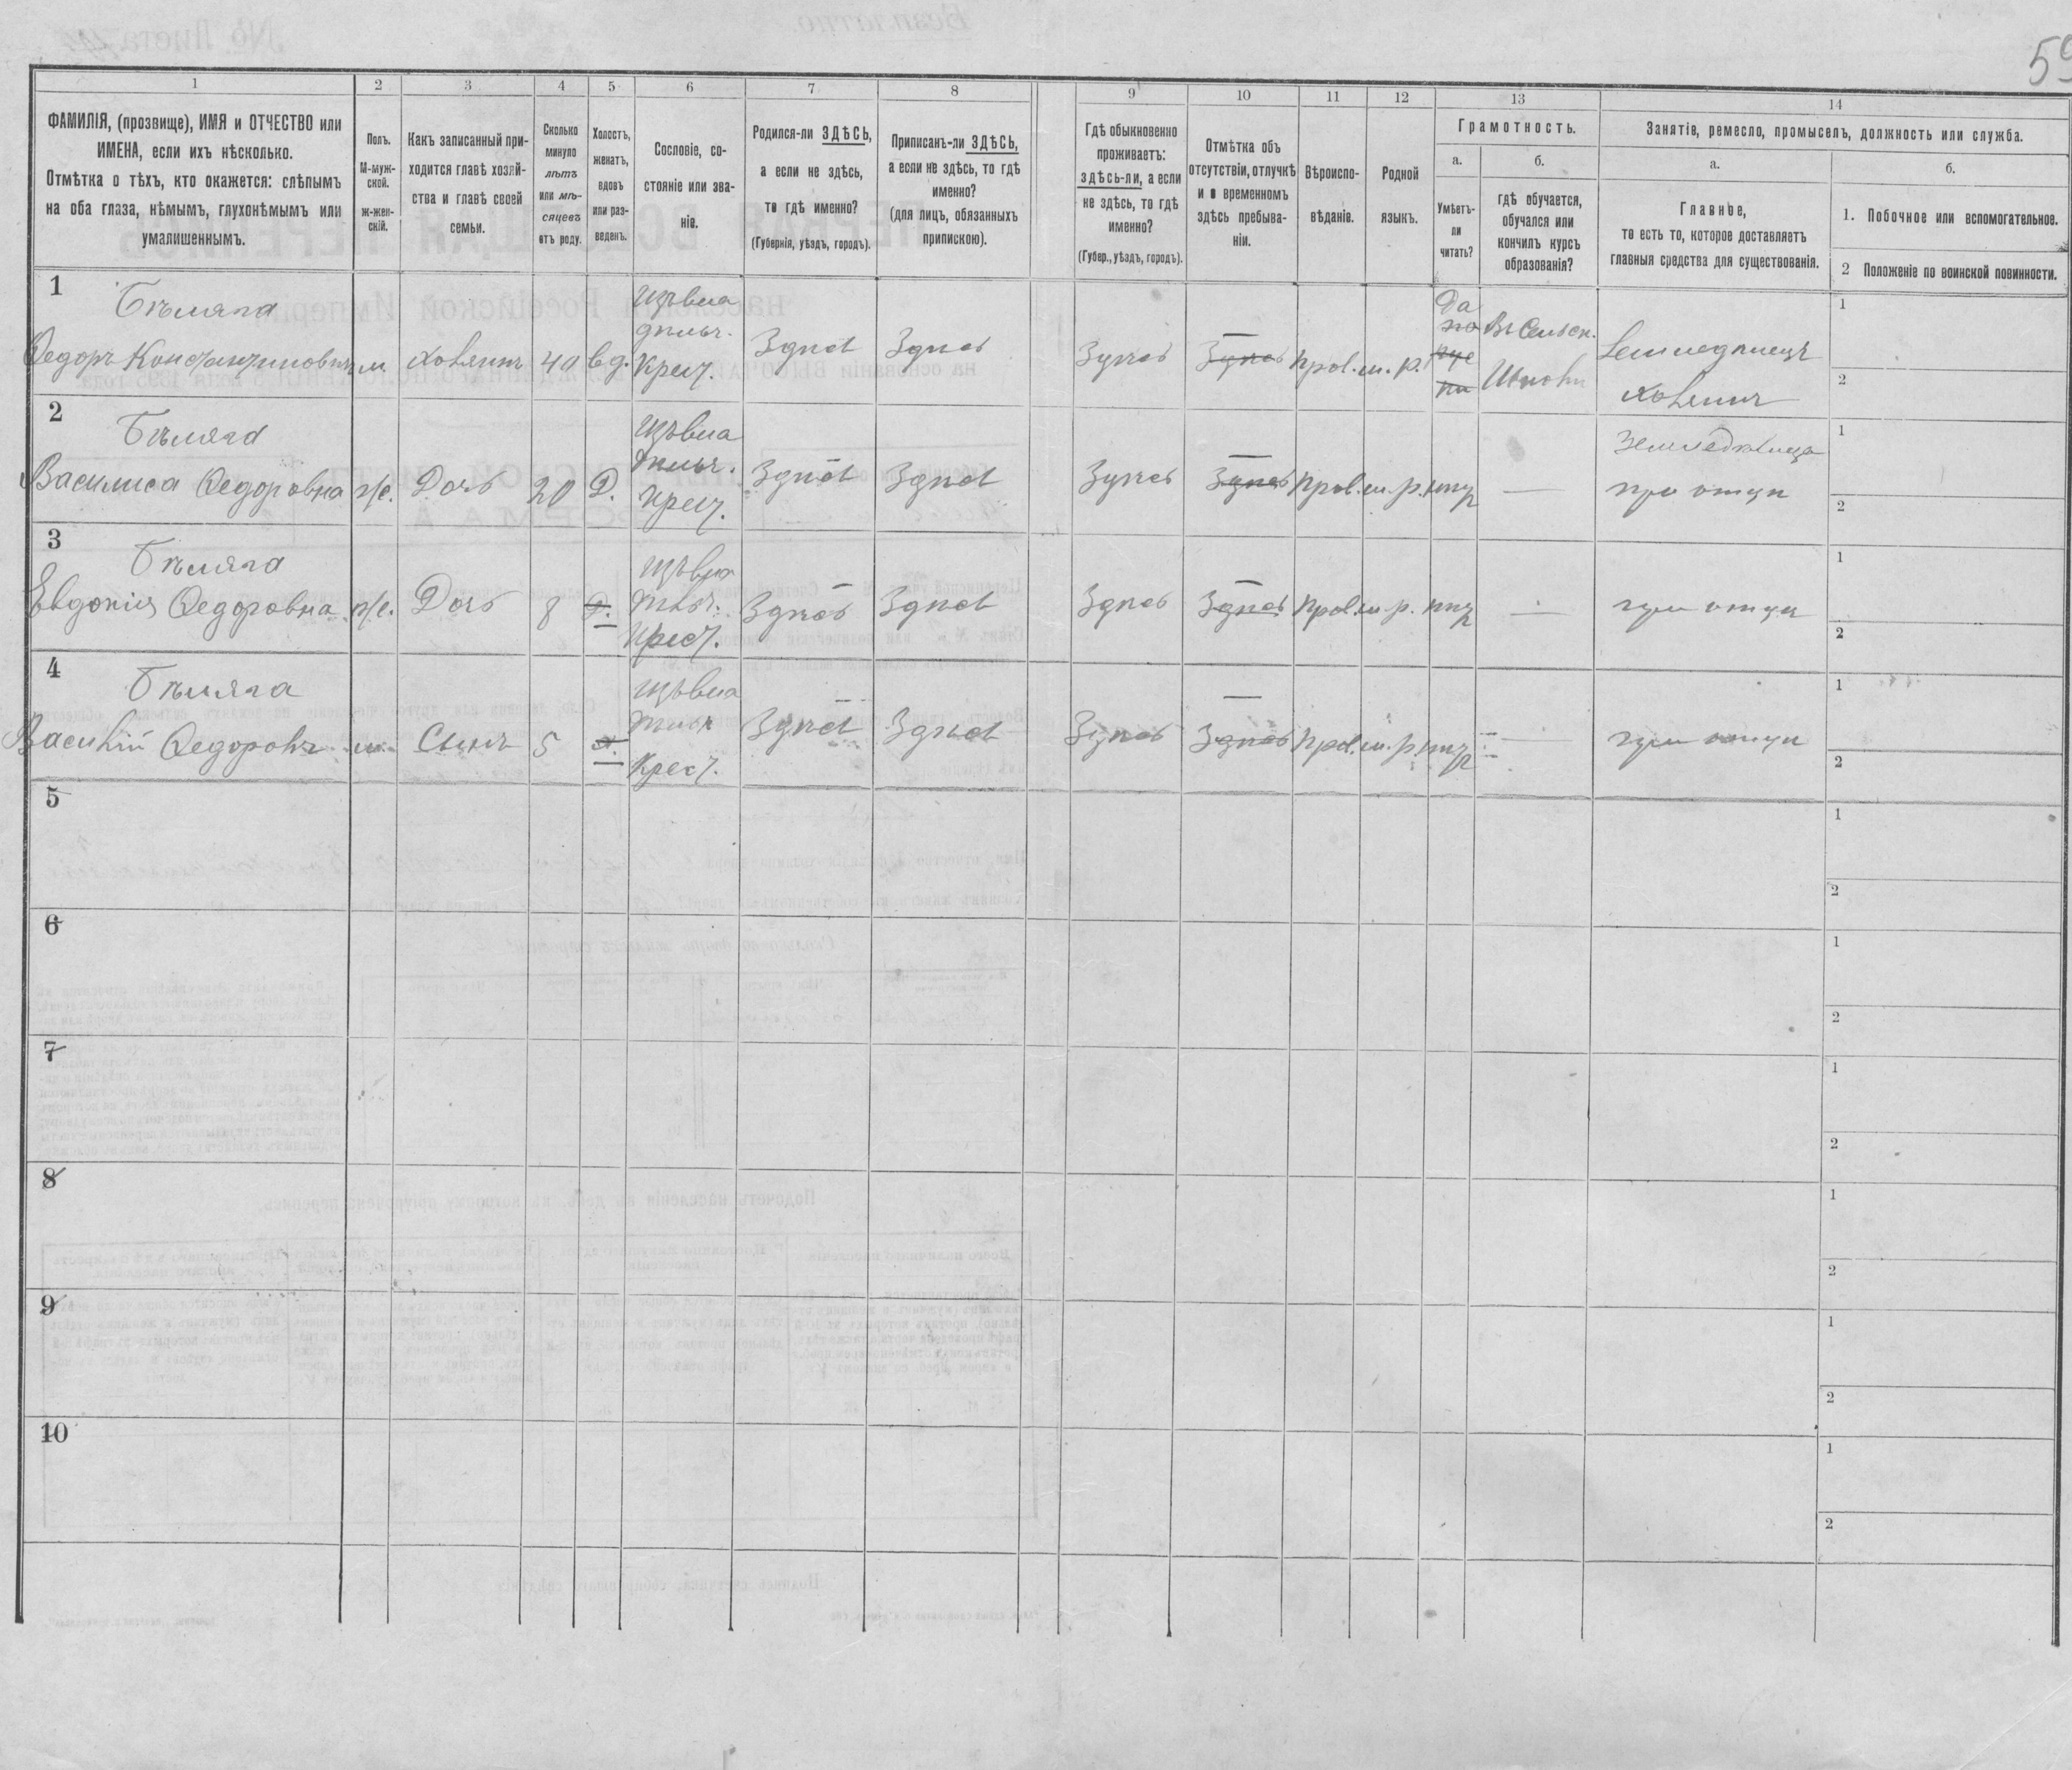 59
1
2
3
4
5
6
7
8
9
10
11
12
13
14
ФАМИЛІЯ, (прозвище), ИМЯ и ОТЧЕСТВО или
ИМЕНА, если ихъ нѣсколько.
Отмѣтка о тѣхъ, кто окажется: слѣпымъ
на оба глаза, нѣмымъ, глухонѣмымъ или
умалишеннымъ.
Полъ.
М-муж-
ской.
ж-жен-
скій.
Какъ записанный при-
ходится главѣ хозяй-
ства и главѣ своей
семьи.
Сколько
минуло
лѣтъ
или мѣ-
сяцевъ
отъ роду.
Холостъ,
женатъ,
вдовъ
или раз-
веденъ.
Сословіе, со-
стояніе или зва-
ніе.
Родился-ли ЗДѢСЬ,
а если не здѣсь,
то гдѣ именно?
(Губернія, уѣздъ, городъ).
Приписанъ-ли ЗДѢСЬ,
а если не здѣсь, то гдѣ
именно?
(для лицъ, обязанныхъ
припискою).
Гдѣ обыкновенно
проживаетъ:
здѣсь-ли, а если
не здѣсь, то гдѣ
именно?
(Губер., уѣздъ, городъ).
Отмѣтка объ
отсутствіи, отлучкѣ
и о временномъ
здѣсь пребыва-
ніи.
Вѣроиспо-
вѣданіе.
Родной
языкъ.
Грамотность.
а.
Умѣетъ-
ли
читать?
б.
гдѣ обучается,
обучался или
кончилъ курсъ
образованія?
Занятіе, ремесло, промыселъ, должность или служба.
а.
Главное,
то есть то, которое доставляетъ
главныя средства для существованія.
б.
1. Побочное или вспомогательное.
2 Положеніе по воинской повинности.
1
Бѣляга
Ѳедоръ Константиновичъ м. хозяинъ 40 вд. Крест. Здѣсь Здѣсь Здѣсь Здѣсь прав. м. р. Да Въ Сельск. Школѣ Земледѣлецъ хозяинъ
1
2
2
Бѣляга
Василиса Ѳедоровна ж. Дочь 20 Д. Крест. Здѣсь Здѣсь Здѣсь Здѣсь прав. м. р. нѣтъ — при отцѣ
1
2
3
Бѣляга
Евдокія Ѳедоровна ж. Дочь 8 Д. Крест. Здѣсь Здѣсь Здѣсь Здѣсь прав. м. р. нѣтъ — при отцѣ
1
2
4
Бѣляга
Василій Ѳедоровъ м. Сынъ 5 х. Крест. Здѣсь Здѣсь Здѣсь Здѣсь прав. м. р. нѣтъ — при отцѣ
1
2
5
1
2
6
1
2
7
1
2
8
1
2
9
1
2
10
1
2